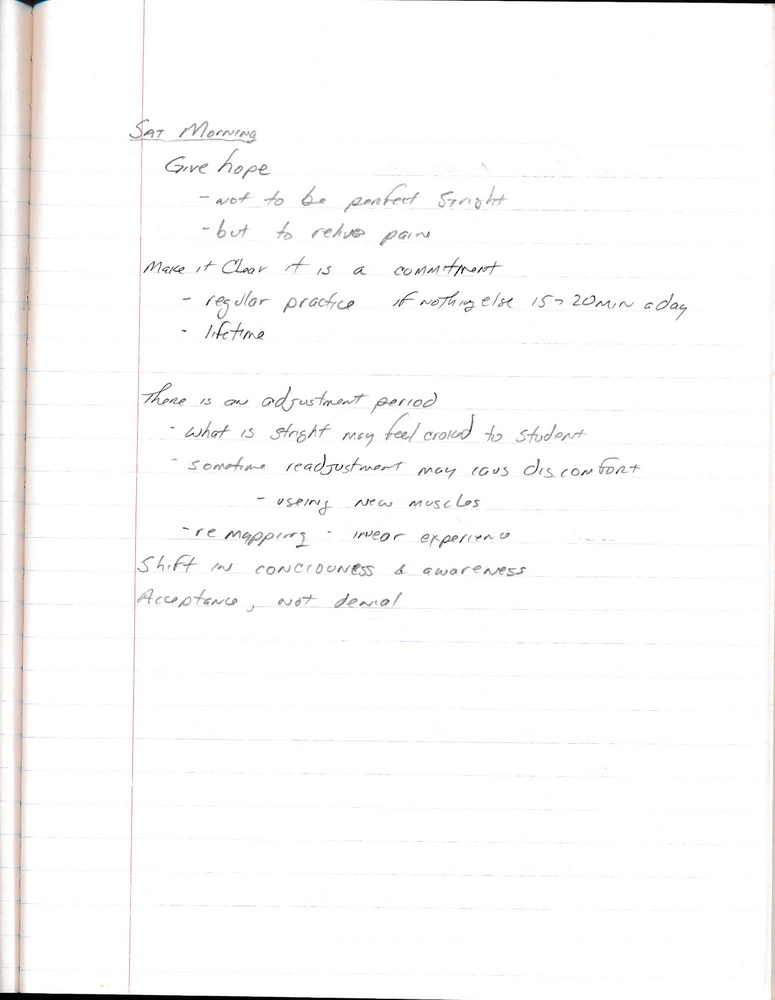 Sat Morning
Give hope
- not to be perfect stright
- but to relive pain
Make it Clear it is a commitment
- regular practice if nothing else 15-20 min a day
- lifetime
There is an adjustment period
- what is stright may feel croked to student
- sometime readjustment may caus discomfort
- useing new muscles
- re mapping - inear experience
Shift in conciouness & awareness
Acceptance, not denial